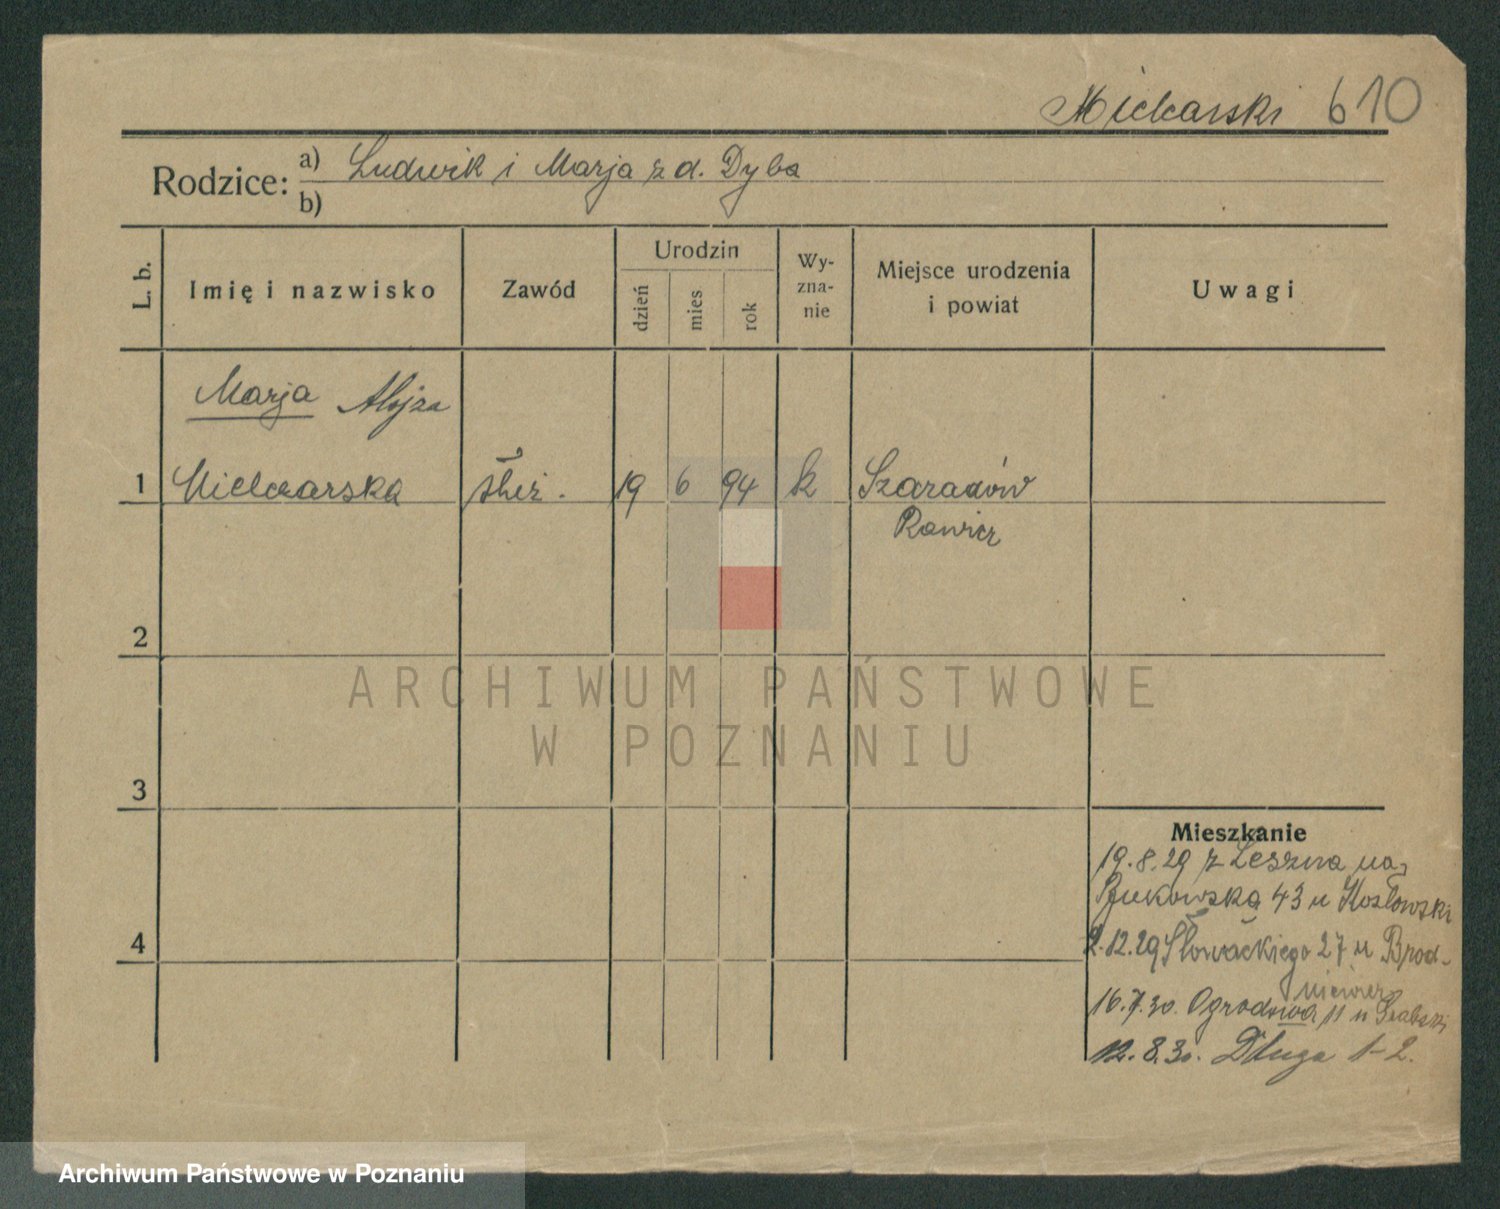 Mielcarski 610
Rodzice: a) Ludwik i Marja z d. Dyba
b)
L. b. Imię i nazwisko Zawód Urodzin dzień mies rok Wyznanie Miejsce urodzenia i powiat Uwagi
Marja Alojza
1 Mielczarska służ. 19 6 94 k Szaradów
Rawicz
2
ARCHIWUM PAŃSTWOWE
W POZNANIU
3
Mieszkanie
19.8.29 z Leszna na
Bukowska 43 u Kozłowski
4
2.12.29 Słowackiego 27 u Brod-
niewicz
16.7.30. Ogrodowa 11 u
12.8.30. Długa 1-2.
Archiwum Państwowe w Poznaniu